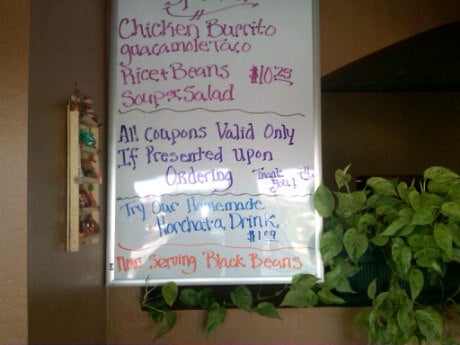 Chicken Burrito
guacamole Taco
Rice + Beans $10.25
Soup or Salad
All Coupons Valid Only
If Presented Upon
Ordering Thank You!
Try Our Homemade
Horchata Drink
$1.99
Now Serving Black Beans